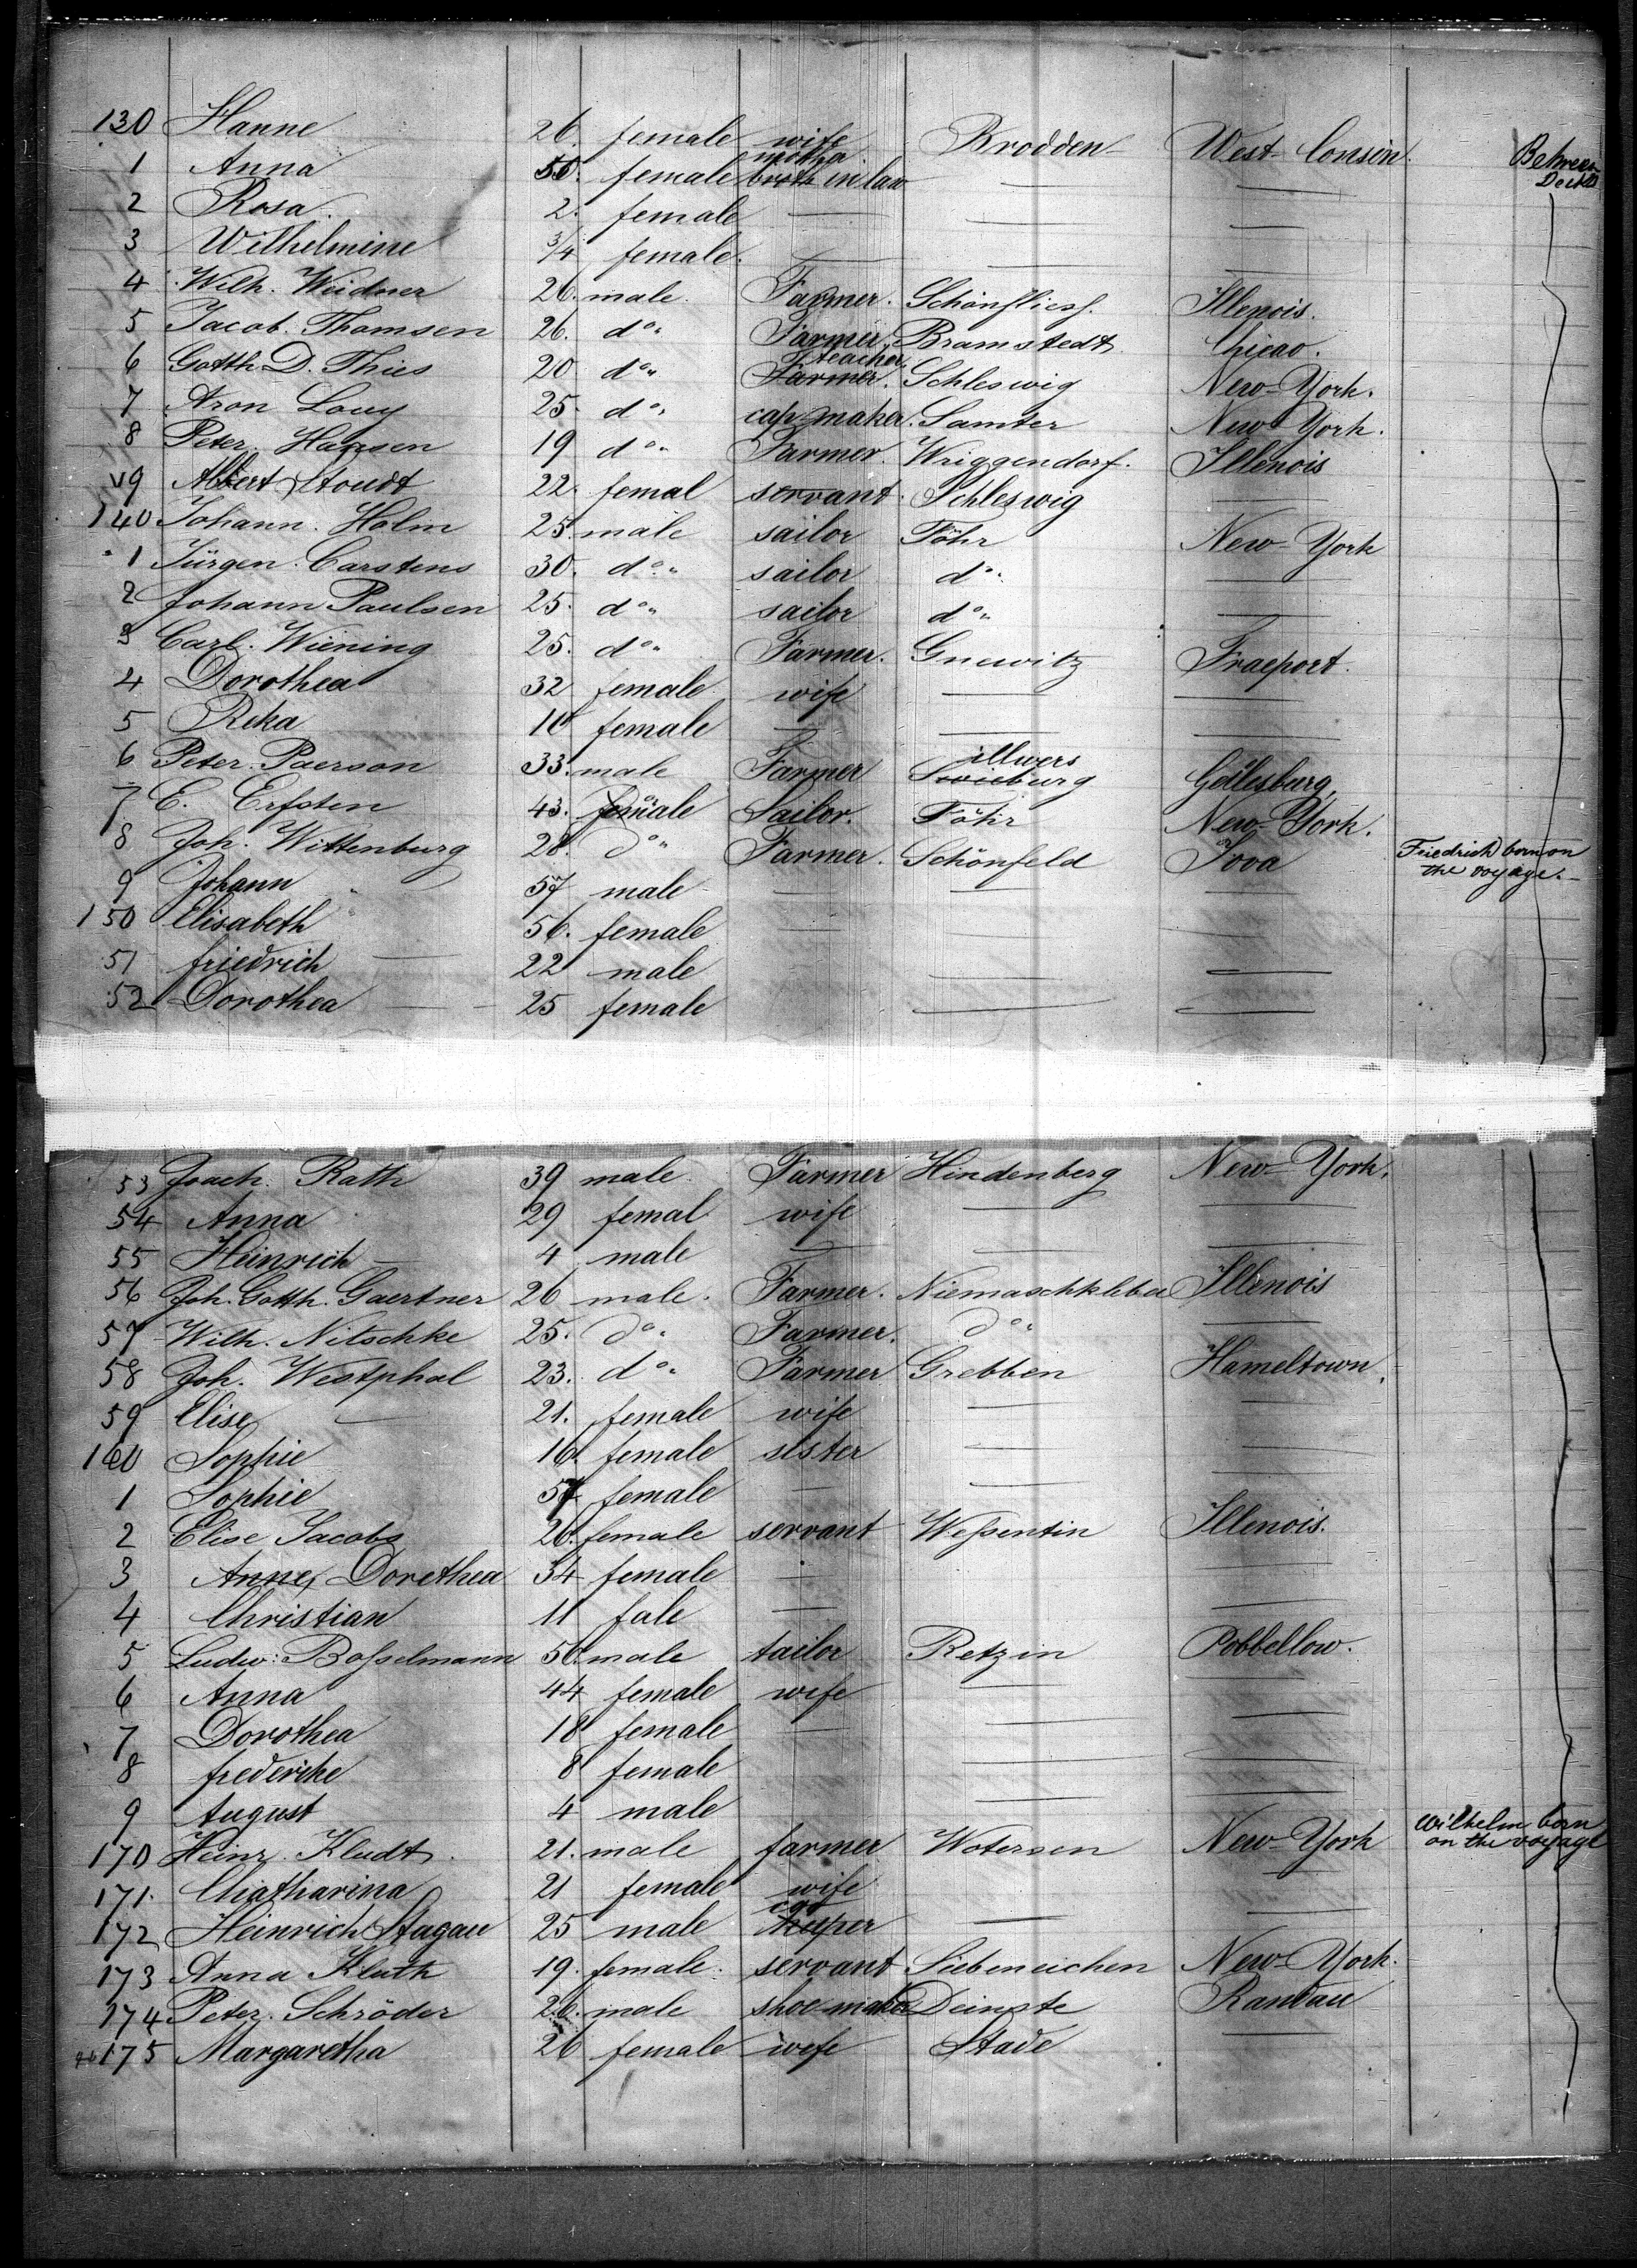 130 Hanne 26. female wife Brodden West-Consin. Between Decks
1 Anna 50. female mother in law
2 Rosa. 2. female
3 Wilhelmine 3/4 female.
4 Wilh. Weidner 26. male. Farmer. Schönfliess. Illenois.
5 Jacob. Thomsen 26. do. Farmer. Bramstedt Chicao.
6 Gotth D. Thies 20 do. teacher Farmer. Schleswig New-York.
7 Aron Louy 25. do. cap maker. Samter New York.
8 Peter. Hansen 19 do. Farmer. Wriggendorf. Illenois
9 Albert Stoudt 22. femal servant. Schleswig
140 Johann. Holm 25. male sailor Föhr New-York
1 Jürgen. Carstens 30. do. sailor do.
2 Johann Paulsen 25. do. sailor do.
3 Carl. Wiening 25. do. Farmer. Gnewitz Fraeport.
4 Dorothea 32 female wife
5 Reka 10 female
6 Peter. Paerson 33. male Farmer
7 E. Erfsten 43. Sailor. Föhr New-York.
8 Joh. Wittenburg 28. do. Farmer. Schönfeld Iova Friedrich born on the voyage.
9 Johann 57 male
150 Elisabeth 56. female
51 friedrich 22 male
52 Dorothea 25 female
53 Joach. Rath 39 male. Farmer Hindenberg New-York.
54 Anna 29 femal wife
55 Heinrich 4 male
56 Joh. Gotth. Gaertner 26 male. Farmer. Niemaschkleba Illenois
57 Wilh. Nitschke 25. do. Farmer. do.
58 Joh. Westphal 23. do. Farmer Grebben Hameltown.
59 Elise 21. female wife
160 Sophie 16. female sister
1 Sophie 57 female
2 Elise Jacobs 26. female servant Wessentin Illenois.
3 Anne Dorethea 34 female
4 Christian 11 fale
5 Ludw: Bosselmann 50. male tailor Retzin Pobbellow.
6 Anna 44 female wife
7 Dorothea 18 female
8 frederike 8 female
9 August 4 male
170 Heinr. Kludt. 21. male farmer Wotersen New-York Wilhelm born on the voyage
171. Chatharina 21 female wife
172 Heinrich Stagau 25 male
173 Anna Kluth 19. female. servant Siebeneichen New-York.
174 Peter. Schröder 26. male shoe maker Deinste Randau
175 Margaretha 26 female wife Stade